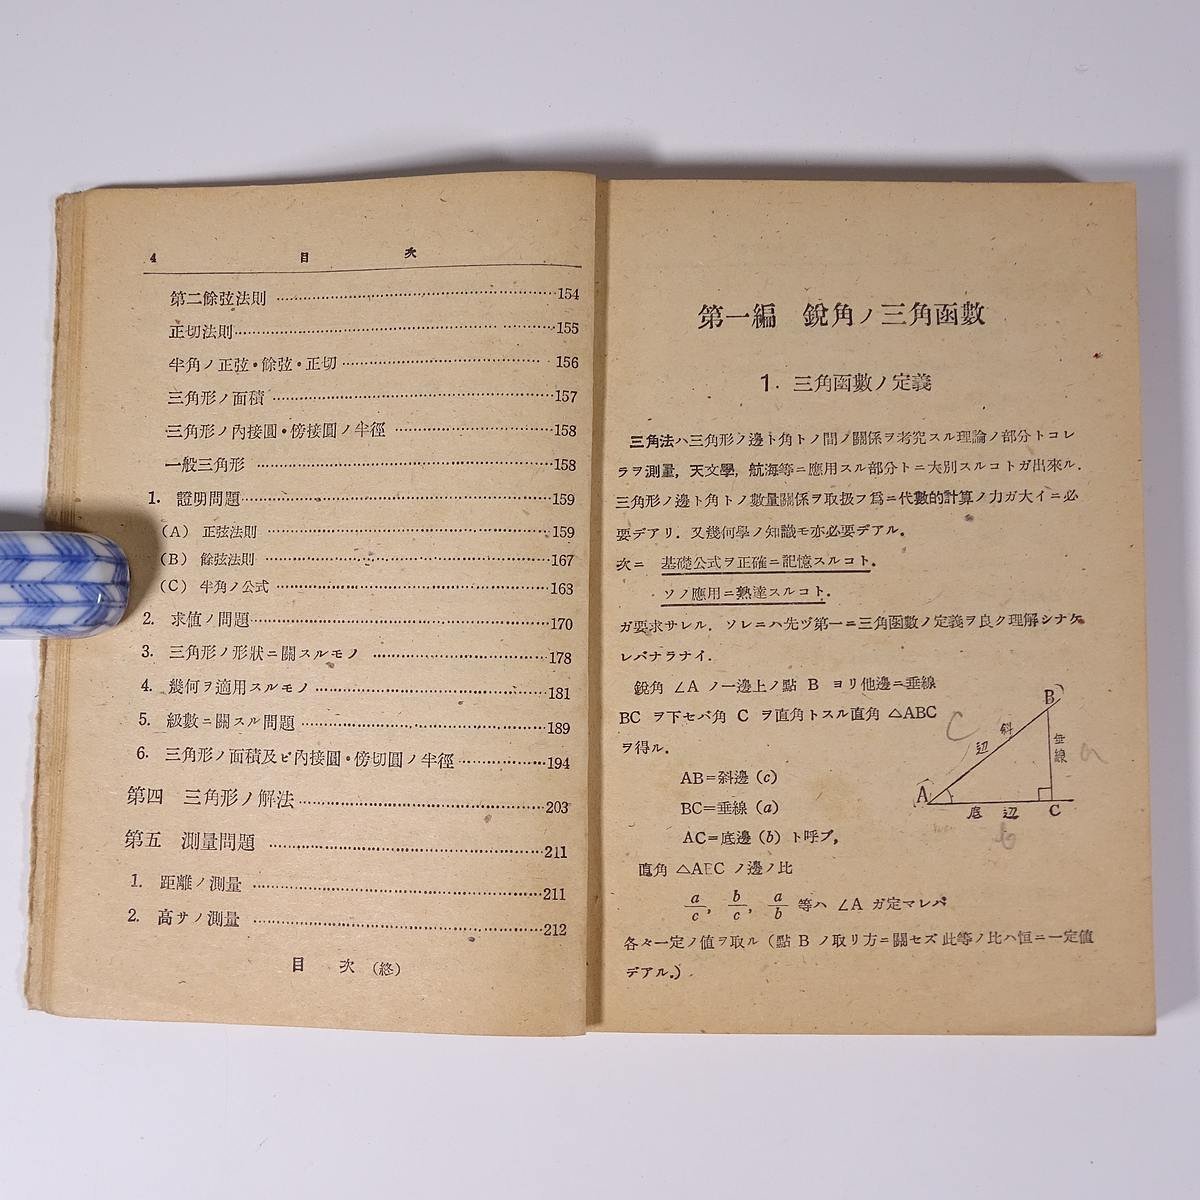 4 目 次
第二餘弦法則 154
正切法則 155
半角ノ正弦・餘弦・正切 156
三角形ノ面積 157
三角形ノ內接圓・傍接圓ノ半徑 158
一般三角形 158
1. 證明問題 159
(A) 正弦法則 159
(B) 餘弦法則 167
(C) 半角ノ公式 168
2. 求値ノ問題 170
3. 三角形ノ形狀ニ關スルモノ 178
4. 幾何ヲ適用スルモノ 181
5. 級數ニ關スル問題 189
6. 三角形ノ面積及ビ內接圓・傍切圓ノ半徑 194
第四 三角形ノ解法 203
第五 測量問題 211
1. 距離ノ測量 211
2. 高サノ測量 212
目 次 (終)
第一編 銳角ノ三角函數
1. 三角函數ノ定義
三角法ハ三角形ノ邊ト角トノ間ノ關係ヲ考究スル理論ノ部分トコレ
ラヲ測量, 天文學, 航海等ニ應用スル部分トニ大別スルコトガ出來ル.
三角形ノ邊ト角トノ數量關係ヲ取扱フ爲ニ代數的計算ノ力ガ大イニ必
要デアリ. 又幾何學ノ知識モ亦必要デアル.
次ニ 基礎公式ヲ正確ニ記憶スルコト.
ソノ應用ニ熟達スルコト.
ガ要求サレル. ソレニハ先ヅ第一ニ三角函數ノ定義ヲ良ク理解シナケ
レバナラナイ.
銳角 ∠A ノ一邊上ノ點 B ヨリ他邊ニ垂線
BC ヲ下セバ角 C ヲ直角トスル直角 △ABC
ヲ得ル.
AB=斜邊 (c)
BC=垂線 (a)
AC=底邊 (b) ト呼ブ,
直角 △ABC ノ邊ノ比
a/c, b/c, a/b 等ハ ∠A ガ定マレバ
各々一定ノ値ヲ取ル (點 B ノ取リ方ニ關セズ此等ノ比ハ恒ニ一定値
デアル.)
B
C
斜
辺
垂線
a
A
底 辺
C
b